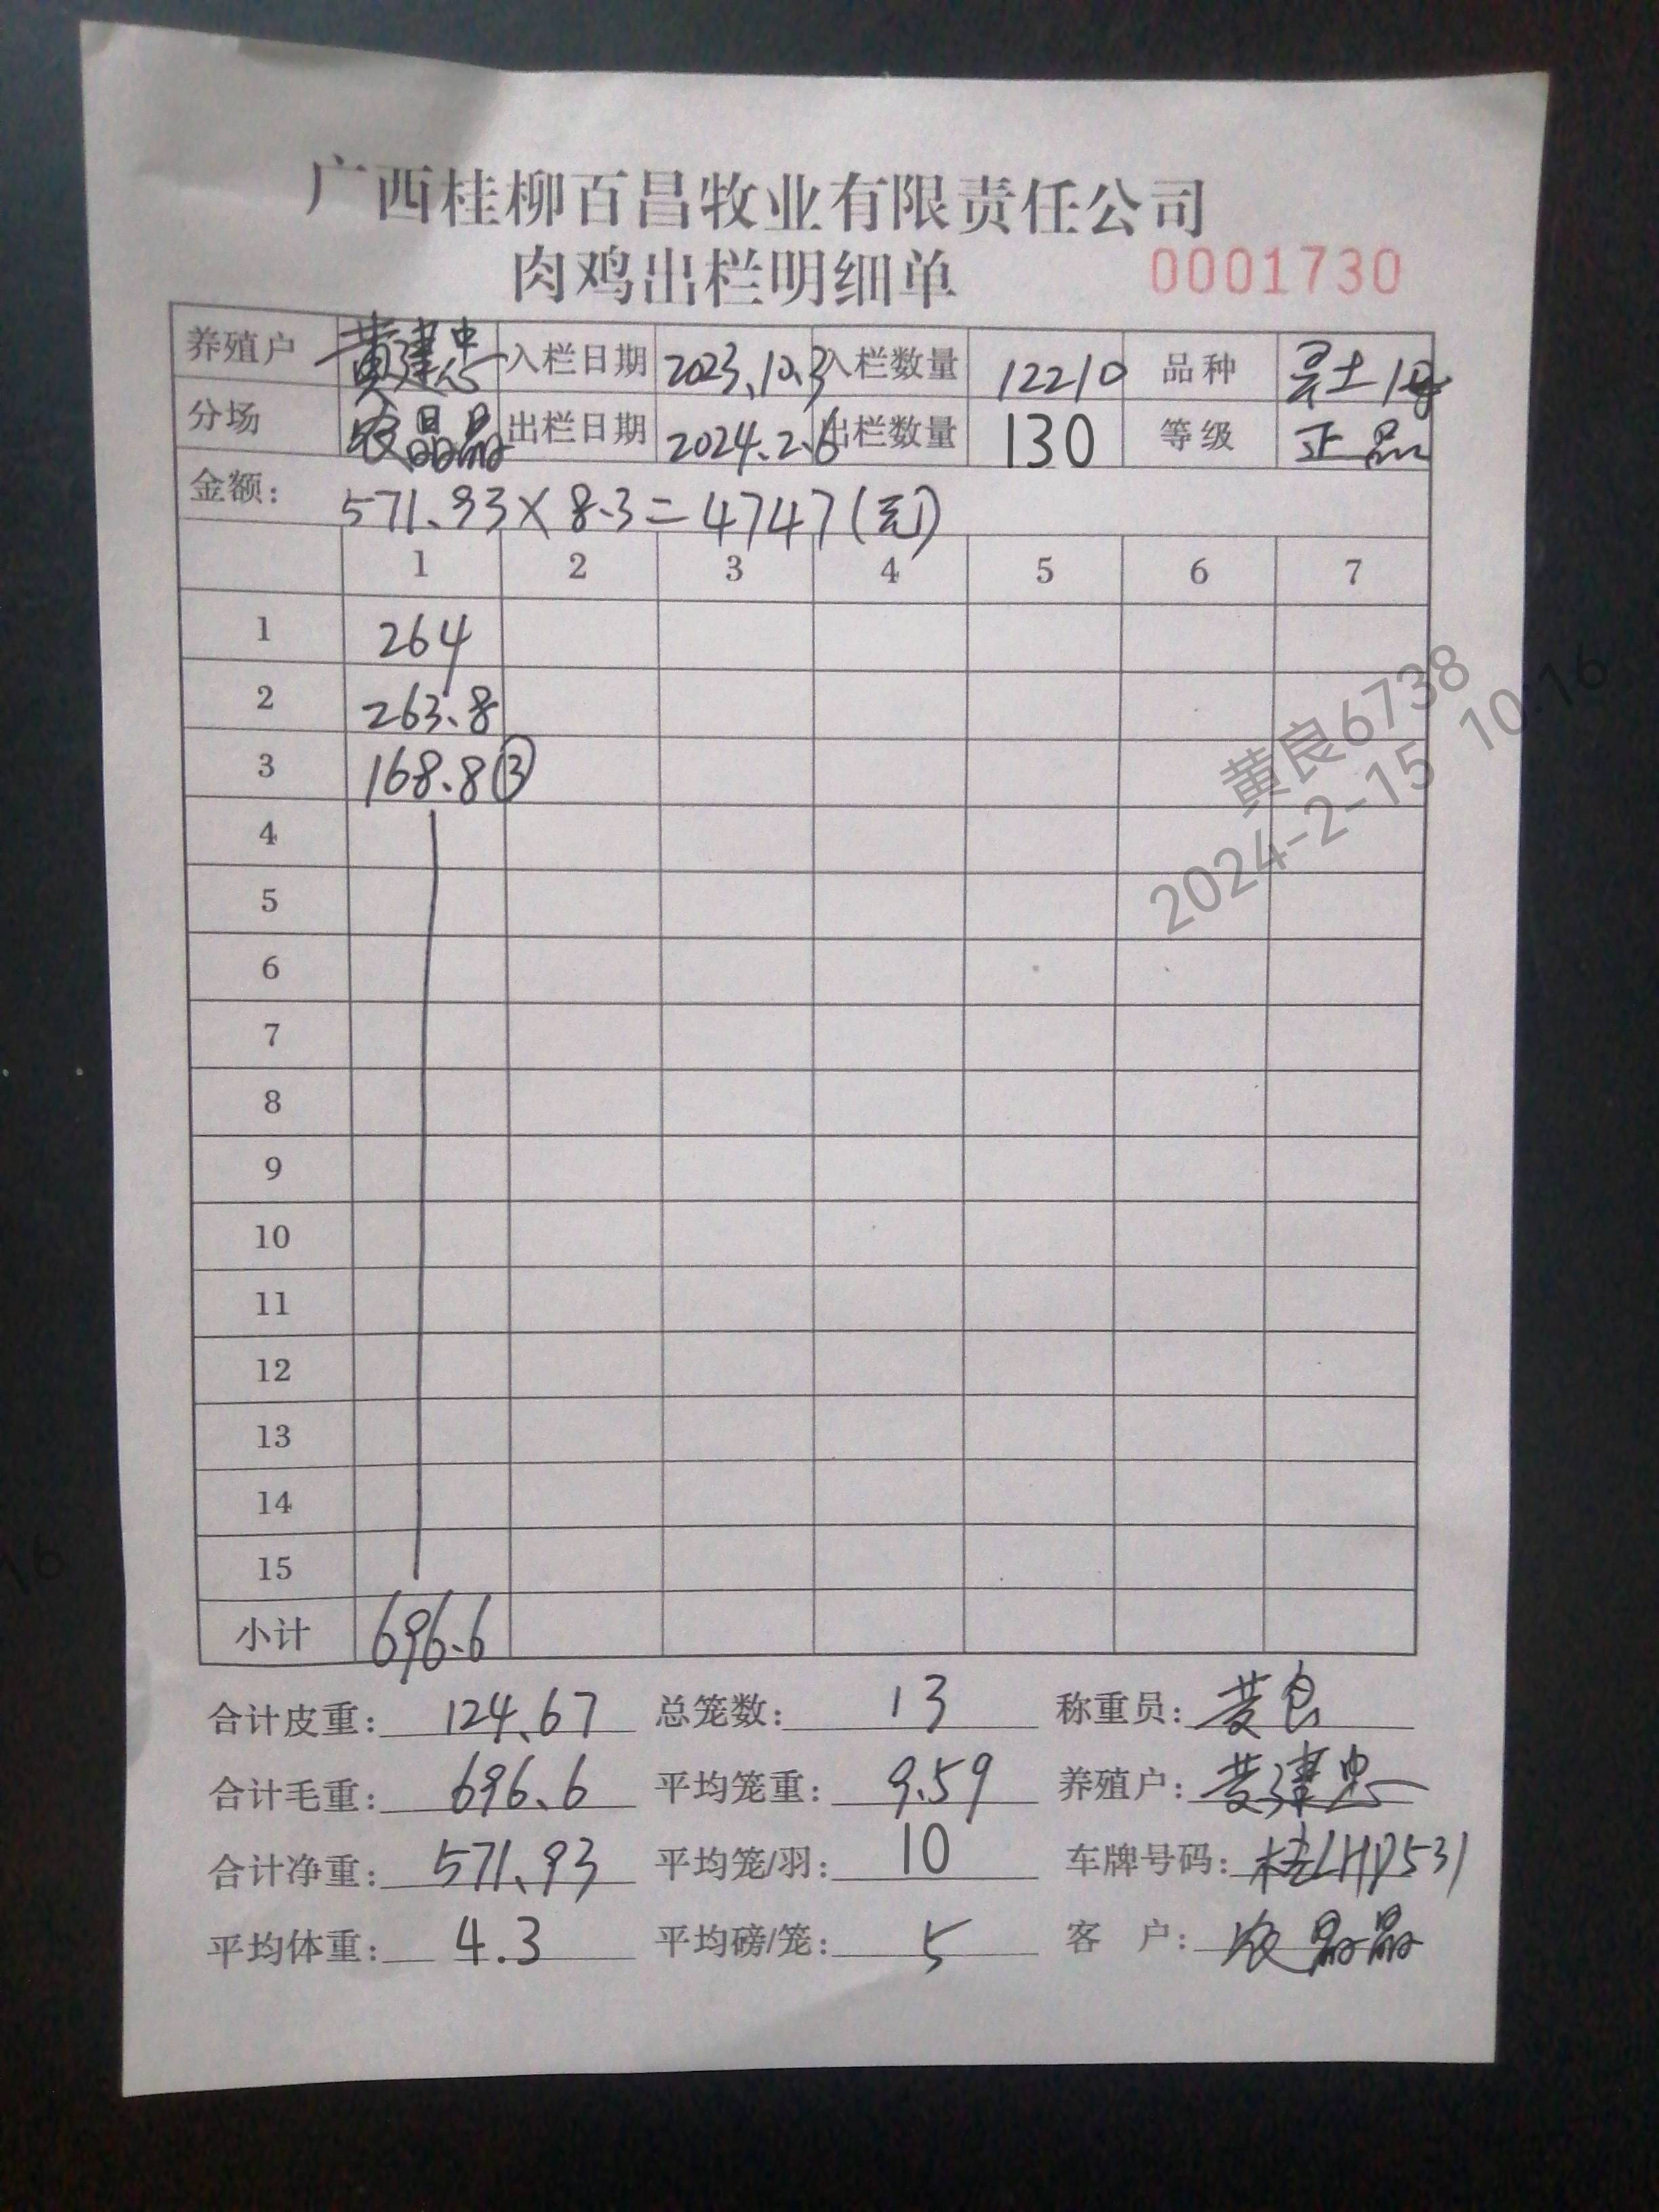 广西桂柳百昌牧业有限责任公司
肉鸡出栏明细单 0001730
养殖户 黄建忠 入栏日期 2023.10.3 入栏数量 12210 品种
分场 农晶晶 出栏日期 2024.2.6 出栏数量 130 等级 正品
金额: 571.93×8.3=4747(元)
1 2 3 4 5 6 7
1 264
2 263.8
3 168.8③
4
5
6
7
8
9
10
11
12
13
14
15
小计 696.6
合计皮重: 124.67 总笼数: 13 称重员: 黄良
合计毛重: 696.6 平均笼重: 9.59 养殖户: 黄建忠
合计净重: 571.93 平均笼/羽: 10 车牌号码:
平均体重: 4.3 平均磅/笼: 5 客 户: 农晶晶
黄良6738
2024-2-15 10:16
16